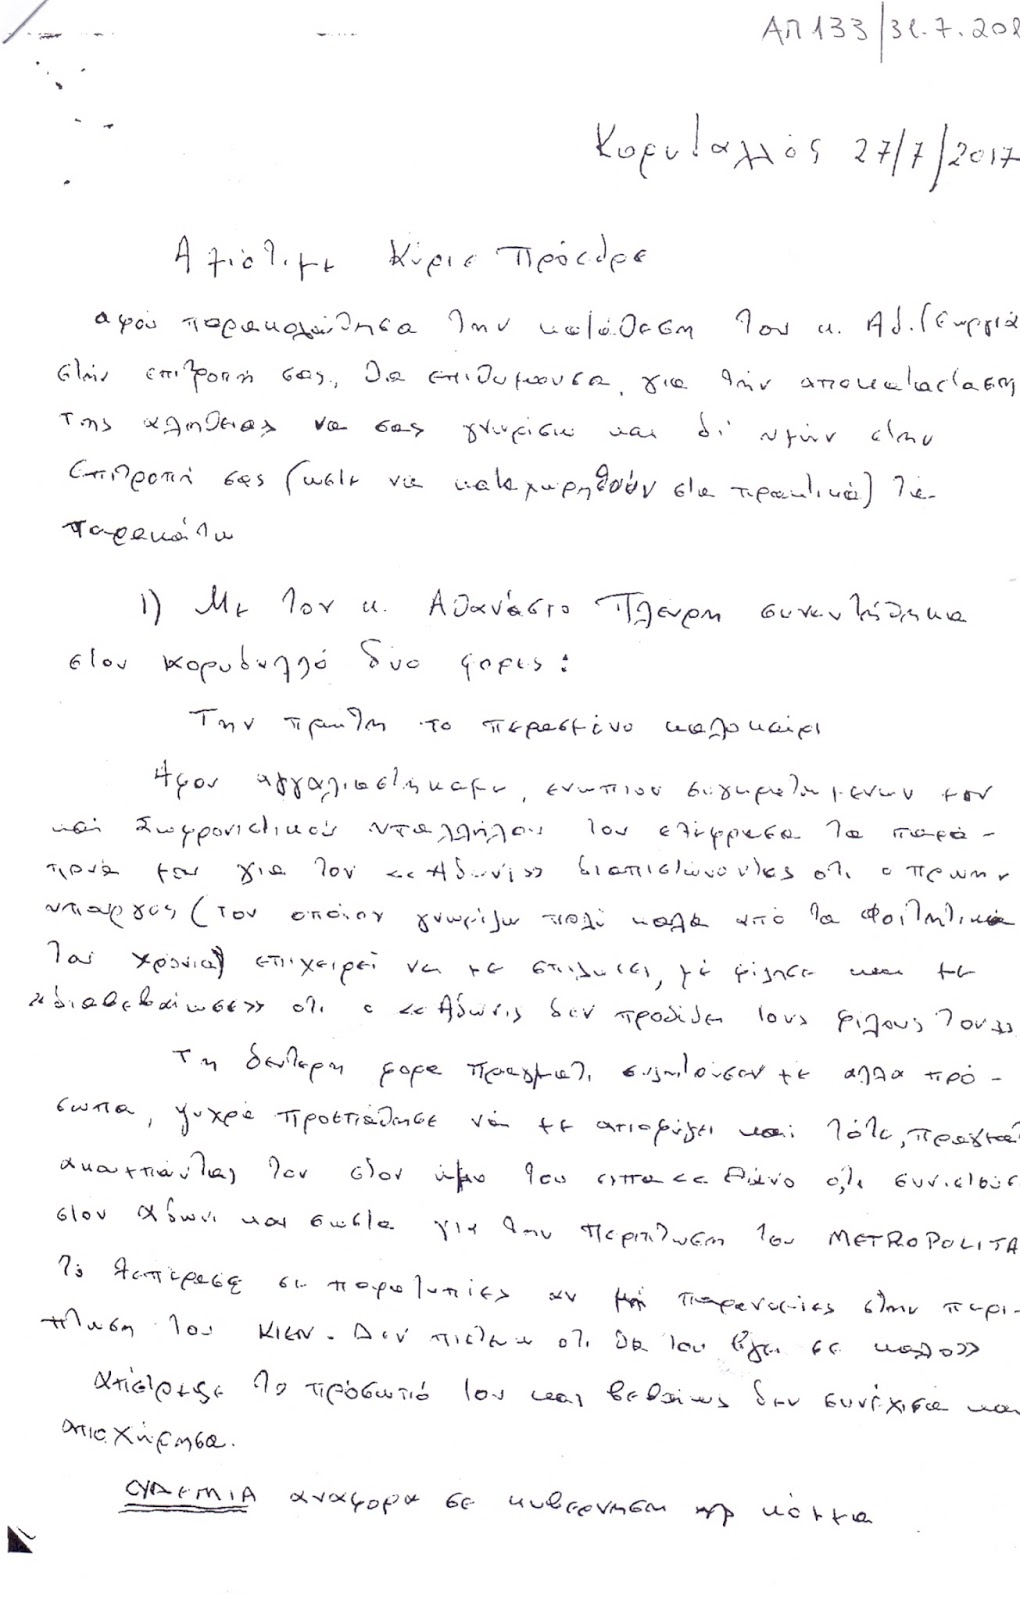 ΑΠ 133/31.7.201
Κορυδαλλός 27/7/2017
Αξιότιμε Κύριε Πρόεδρε
αφού παρακολούθησα την κατάθεση του κ. Αδ. Γεωργιά
στην επιτροπή σας, θα επιθυμούσα, για την αποκατάσταση
της αλήθειας να σας γνωρίσω και δι' υμών στην
Επιτροπή σας (ώστε να καταχωρηθούν στα πρακτικά) τα
παρακάτω
1) Με τον κ. Αθανάσιο Πλεύρη συναντήθηκα
στον κορυδαλλό δύο φορές:
Την πρώτη το περασμένο καλοκαίρι
Αφού αγκαλιαστήκαμε, ενώπιον συγκρατουμένων μου
και Σωφρονιστικού υπαλλήλου του εξέφρασα τα παρά-
πονά μου για τον <<Αδωνι>> διαπιστώνοντας ότι ο πρώην
υπουργός (τον οποίον γνωρίζω πολύ καλά από τα φοιτητικά
του χρόνια) επιχειρεί να με σπιλώσει, με φίλησε και με
<<διαβεβαίωσε>> ότι ο <<Αδωνις δεν προδίδει τους φίλους του>>
Τη δεύτερη φορά πραγματι, συζητούσαν με αλλα πρό-
σωπα, ψυχρά προσπάθησε να με αποφύγει και τότε,
τον στον ώμο του ειπα << Θάνο ότι συνιστούσ
στον Αδωνι και σωστα για την περίπτωση του METROPOLITA
το ξεπέρασε σε παρανομίες στην περί-
πτωση του ΚΙΕΝ. Δεν πιστευω οτι θα του βγει σε καλο>>
Απέστρεψε το πρόσωπό του και βεβαίως δεν συνέχισα και
αποχώρησα.
ΟΥΔΕΜΙΑ αναφορα σε κυβερνηση κόμμα